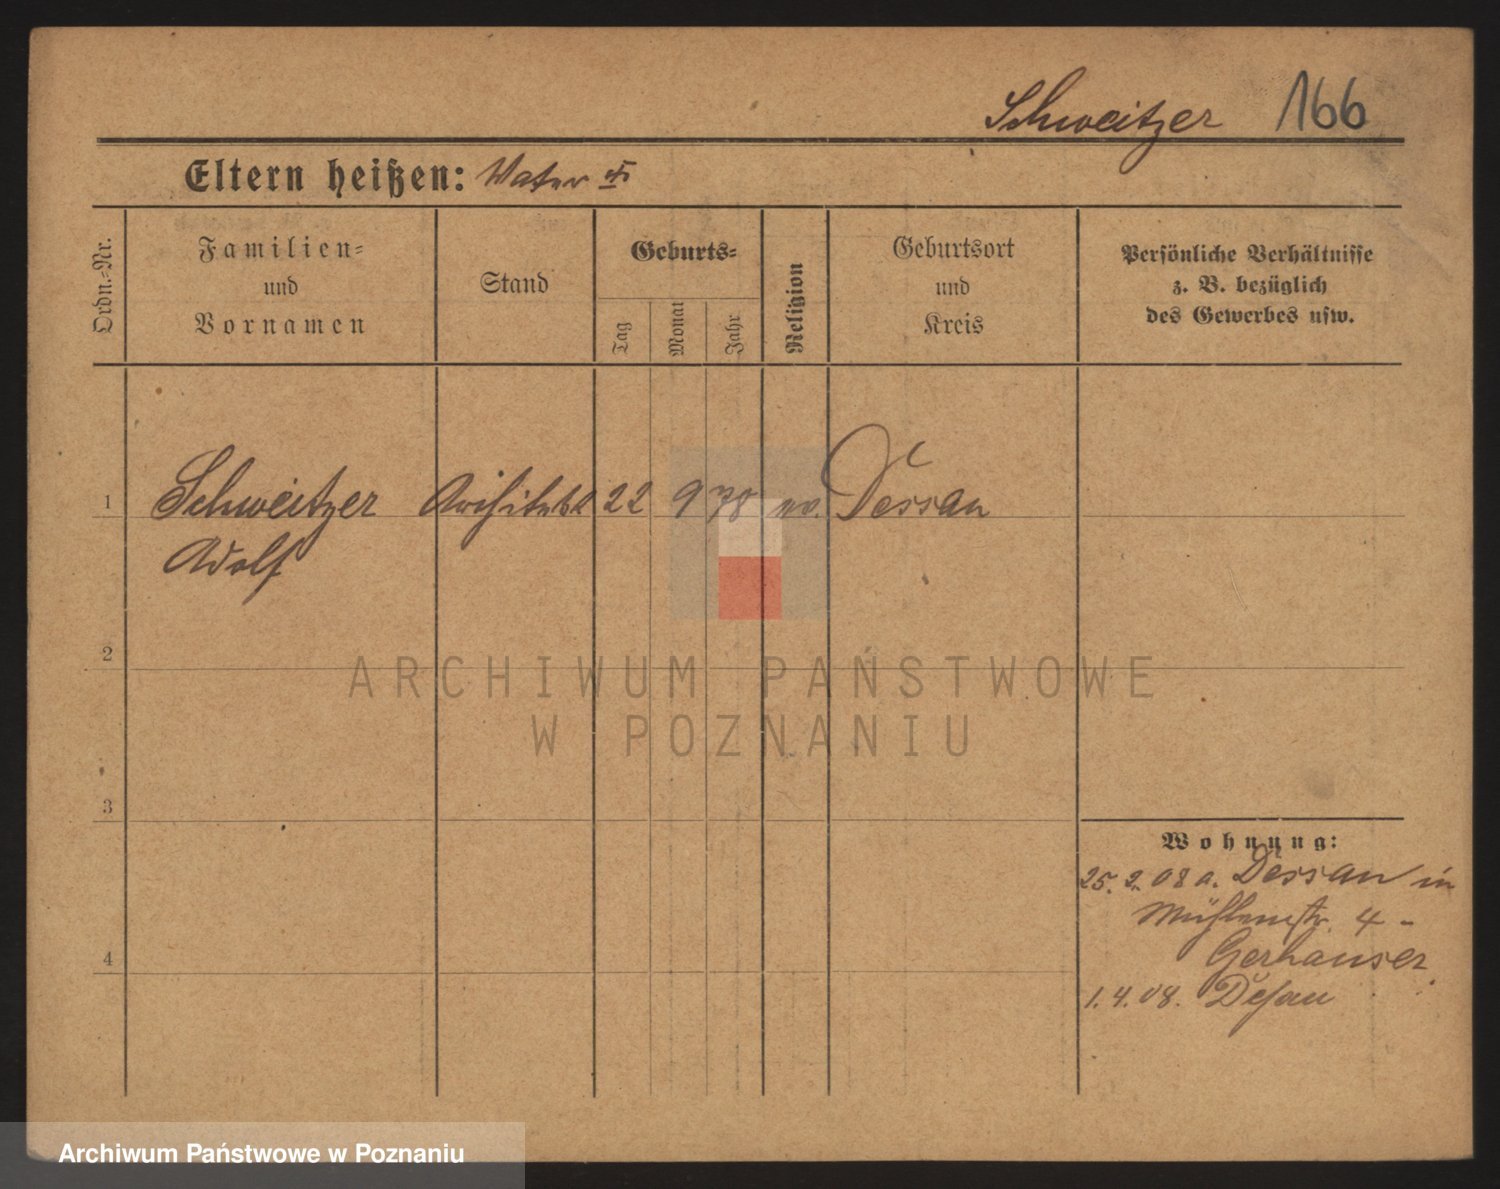 Schweitzer 166
Eltern heißen: Vater
Ordn.-Nr.
Familien-
und
Vornamen
Stand
Geburts-
Tag
Monat
Jahr
Religion
Geburtsort
und
Kreis
Persönliche Verhältnisse
z. B. bezüglich
des Gewerbes usw.
1 Schweitzer Architekt 22 9 78 ev. Dessau
Adolf
2
ARCHIWUM PAŃSTWOWE
W POZNANIU
3
Wohnung:
25. 2. 08 a. Dessau in
Mühlenstr. 4 -
Gerhauser
4
1. 4. 08. Dessau
Archiwum Państwowe w Poznaniu